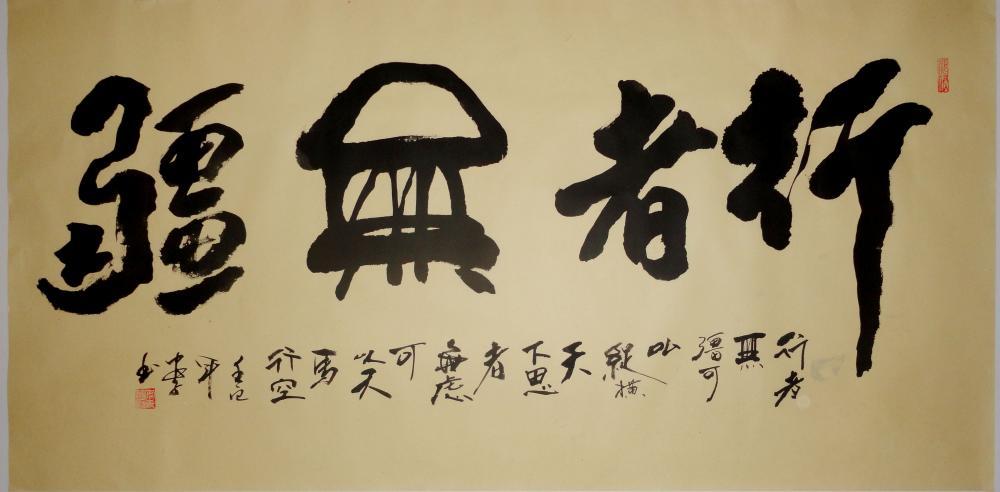 行者無疆
行者
無
疆可
以
縱橫
天
下思
者
無慮
可
以天
馬
行空